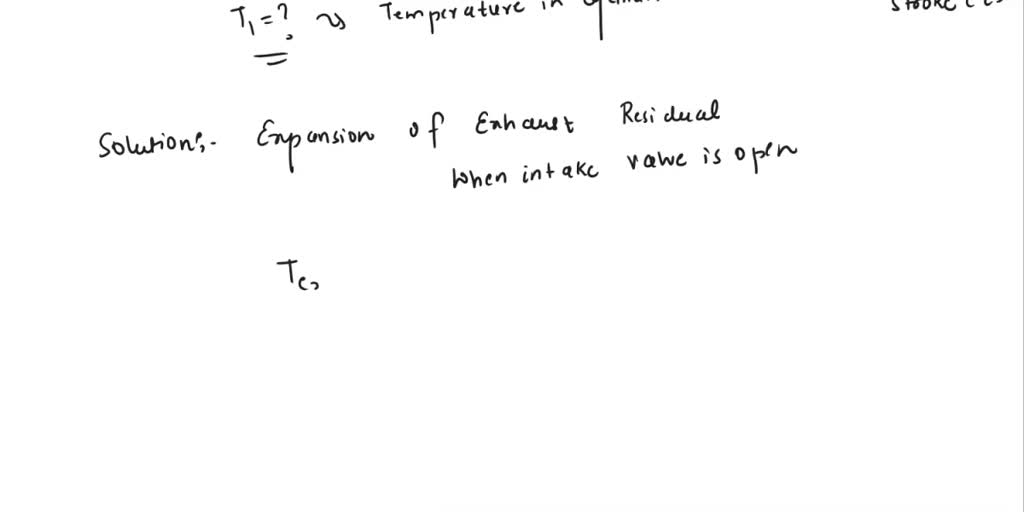 T₁ = ? ~> Temperature in
Solution:- Expansion of Exhaust Residual
when intake valve is open
Te,